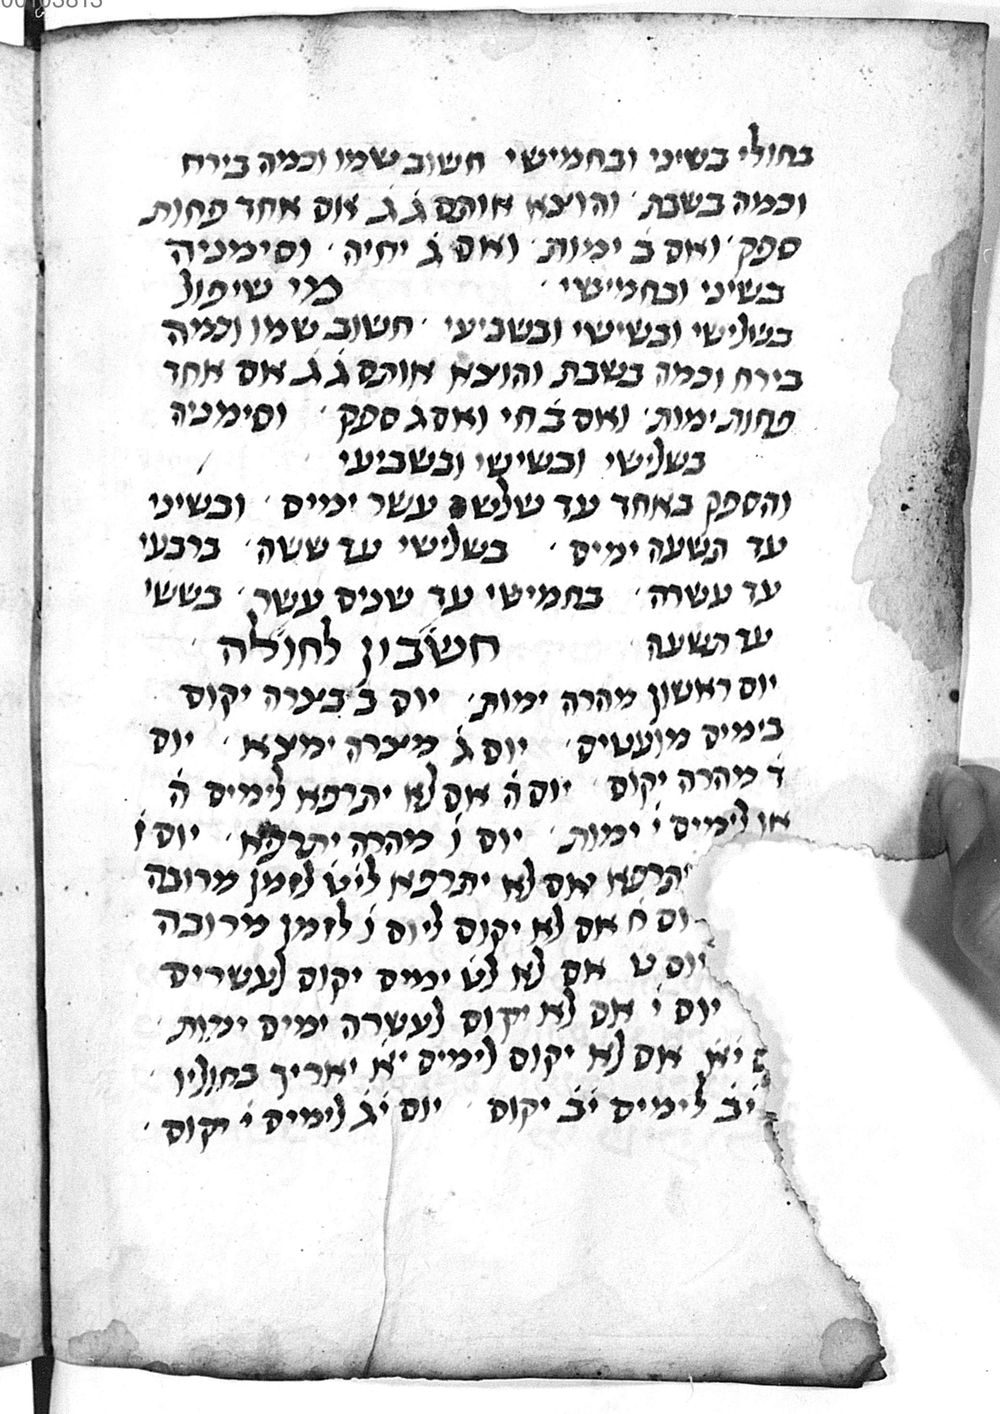 בחולי בשיני ובחמישי חשוב שמו וכמה בירח
וכמה בשבת והוצא אותם ג̇ ג̇ אם אחד פחות
ספק ואם ב̇ ימות ואם ג̇ יחיה וסימניה
בשיני ובחמישי מי שיפול
בשלישי ובשישי ובשביעי חשוב שמו וכמה
בירח וכמה בשבת והוצא אותם ג̇ ג̇ אם אחד
פחות ימות ואם ב̇ חי ואם ג̇ ספק וסימניה
בשלישי ובשישי ובשביעי
והספק באחד עד שלשה עשר ימים ובשיני
עד תשעה ימים בשלישי עד ששה ברבעי
עד עשרה בחמישי עד שנים עשר בששי
עד תשעה חשבון לחולה
יום ראשון מהרה ימות יום ב̇ בצרה יקום
בימים מועטים יום ג̇ מצרה ימצא יום
ד̇ מהרה יקום יום ה̇ אם לא יתרפא לימים ה̇
או לימים י̇ ימות יום ו̇ מהרה יתרפא יום ז̇
יתרפא אם לא יתרפא לי̇ט̇ לזמן מרובה
יום ח̇ אם לא יקום ליום ו̇ לזמן מרובה
יום ט̇ אם לא לט̇ ימים יקום לעשרים
יום י̇ אם לא יקום לעשרה ימים ימות
י̇א̇ אם לא יקום לימים י̇א̇ יאריך בחוליו
י̇ב̇ לימים י̇ב̇ יקום יום י̇ג̇ לימים י̇ יקום